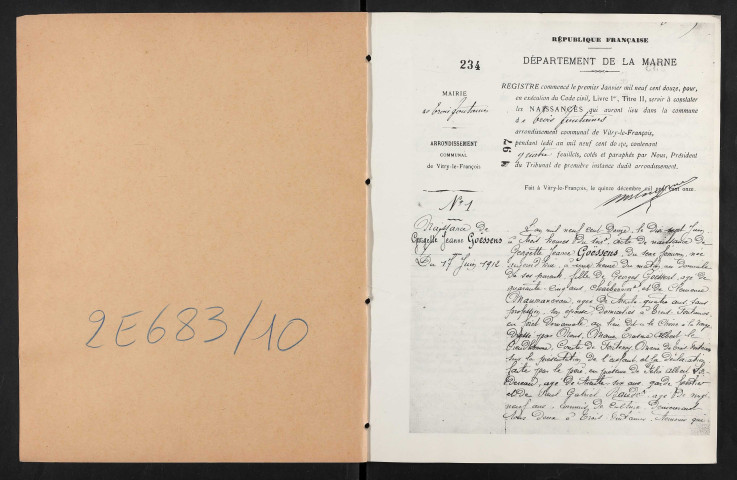 2E683/10
RÉPUBLIQUE FRANÇAISE
234
DÉPARTEMENT DE LA MARNE
MAIRIE
de trois fontaines
ARRONDISSEMENT
COMMUNAL
de Vitry-le-François
REGISTRE commencé le premier Janvier mil neuf cent douze, pour,
en exécution du Code civil, Livre Ier, Titre II, servir à constater
les NAISSANCES qui auront lieu dans la commune
d trois fontaines
arrondissement communal de Vitry-le-François,
pendant ledit an mil neuf cent douze, contenant
quatre feuillets, cotés et paraphés par Nous, Président
du Tribunal de première instance dudit arrondissement.
M 97
Fait à Vitry-le-François, le quinze décembre mil neuf cent onze.
No 1
Naissance de
Georgette Jeanne Goëssens
Du 17 Juin 1912
L'an mil neuf cent douze, le dix-sept Juin
à trois heures du soir, acte de naissance de
Georgette Jeanne Goëssens, du sexe féminin, née
aujourd'hui, à heure du matin, au domicile
de ses parents, fille de Georges Goëssens, âgé de
quarante cinq ans, et de
âgée de trente quatre ans, sans
profession, son épouse, domiciliés à Trois-Fontaines,
en forêt Domaniale, au lieu dit
par Nous, Albert
Comte de Fontenay, Maire de
sur la présentation de l'enfant et la déclaration
faite par le père, en présence de Jules Albert
âgé de trente six ans, garde forestier
et de Paul Gabriel âgé de vingt
neuf ans, commis de culture, demeurant
tous deux à Trois-Fontaines, témoins qui